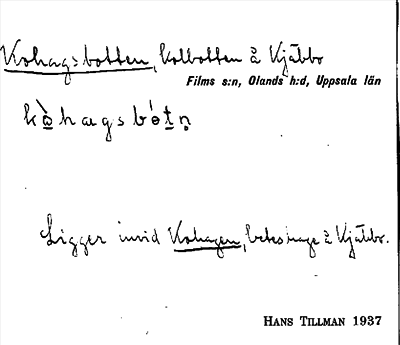 Kohagsbotten, kolbotten å Kjäbbo
Films s:n, Olands h:d, Uppsala län
kòhagsbótn
Ligger invid Kohagen, beteshage å Kjäbbo.
HANS TILLMAN 1937